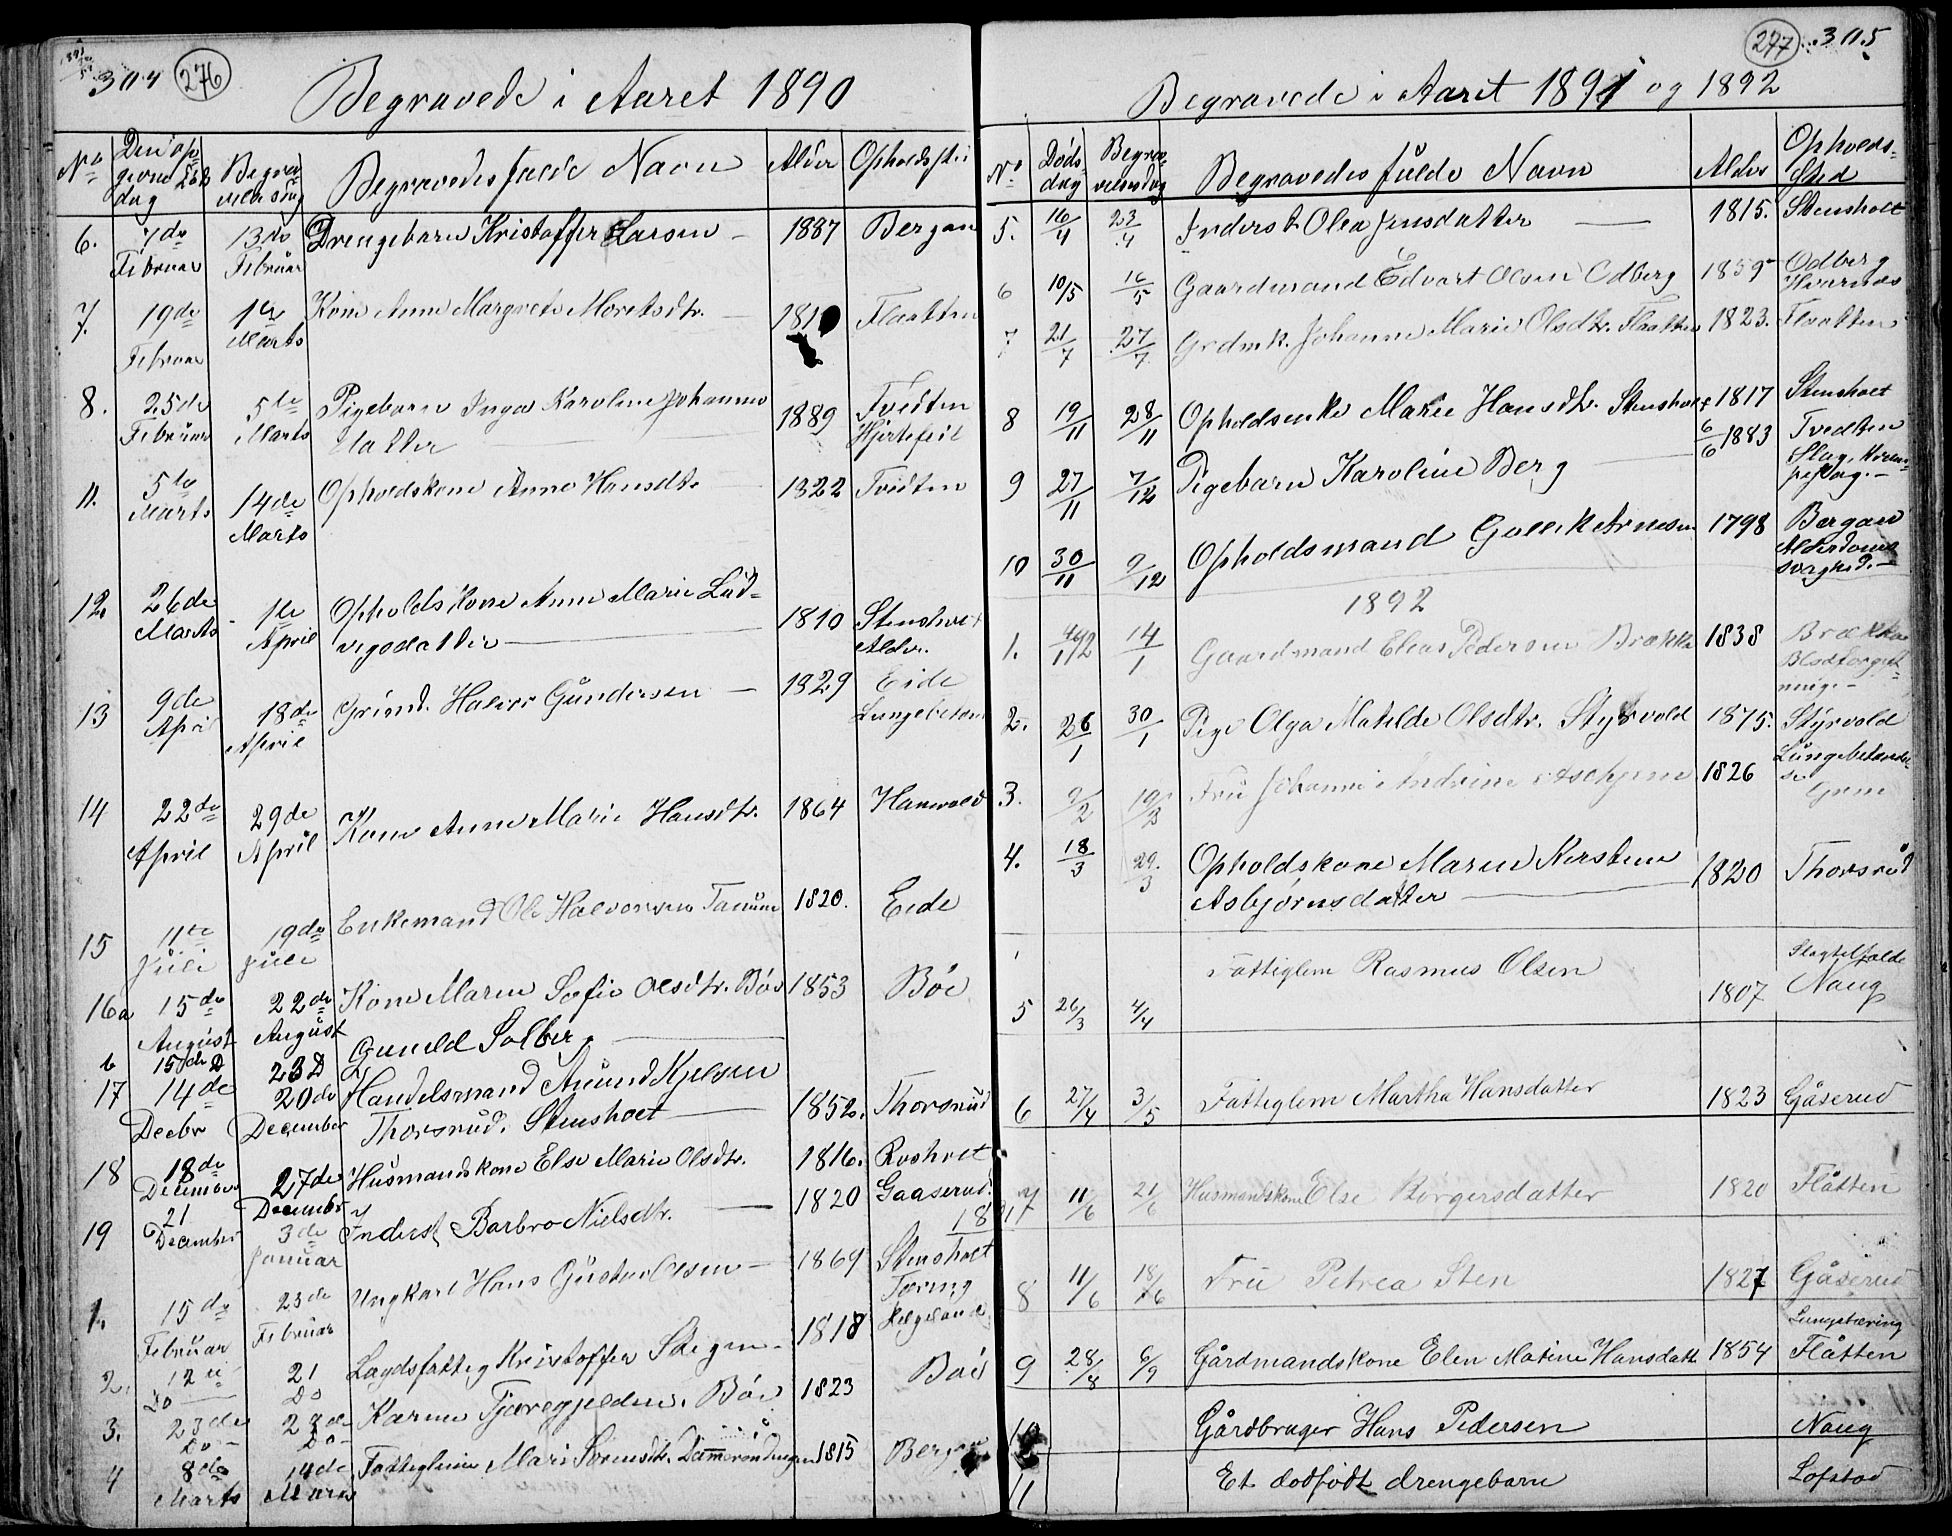 304 276
Begravede i Aaret 1890
No Den opgivne Død dag Begravelsesdag Begravedes fulde Navn Alder Opholdssted
6. 7de Februar 13de Februar Drengebarn Kristoffer Larsen 1887 Bergan
7. 19de Februar 1ste Marts Kone Anne Margrete Moretsdtr. Flaatten
8. 25de Februar 5te Marts Pigebarn Inga Karoline Johannes 1889 Tvedten
datter
11. 5te Marts 14de Marts Opholdskone Anne Hansdtr. 1822 Tvedten
12. 26de Marts 1ste April Opholdskone Anne Marie Lud- 1810 Stensholt
vigsdatter Alder.
13 9de April 18de April Grmd. Halvor Gundersen 1829 Eide
Lungebetæn
14 22de April 29de April Kone Anne Marie Hansdtr. 1864 Hanevold
15 11te Juli 19de Juli Enkemand Ole Halvorsen Tanum 1820. Eide
16a 15de August 22de August Kone Maren Sofie Olsdtr. Bøe 1853 Bøe
b 15de D 23 D Guneld Solberg
17 14de Decbr 20de December Handelsmand Amund Kjelsen
Thorsrud. Stensholt 1852. Thorsrud
18 18de December 27de December Husmandskone Else Marie Olsdtr. 1816. Rosholt
19 21 December 3de Januar Inderst Barbro Nielsdtr. 1820 Gaaserud
18 91
1. 15de Februar 23de Februar Ungkarl Hans Gustav Olsen 1869 Stensholt
Tæring
2. 12te Do 21 Do Lægdsfattig Kristoffer Skigen 1818 Helgeland
3. 23de Do 28de Do Karen Tjæregjelden. Bøe 1823 Bøe
4 8de Marts 14de Marts Fattiglem Mari Sørensdtr. 1815 Bergan
277 305
Begravede i Aaret 1891 og 1892
No Dødsdag Begravelsesdag Begravedes fulde Navn Alder Opholds-
Sted
5. 16/4 23/4 Inderst Olea Jensdatter 1815. Stensholt
6 10/5 16/5 Gaardmand Edvart Olsen Odberg 1859 Odberg
Hvarnæs
7 21/7 27/7 Grdmk. Johanne Marie Olsdtr. Flaatten 1823. Flaatten
8 19/11 28/11 Opholdsenke Marie Hansdtr. Stensholt 1817 Stensholt
9 27/11 7/12 Pigebarn Karoline Berg 6/6 1883 Tvedten
Slag.
10 30/11 9/12 Opholdsmand Gullek Arnesen 1798 Bergan
Alderdoms
svaghed.
1892
1. 14/1 Gaardmand Elias Pedersen Brække 1838 Brække
Blodforgift
ning
2. 26/1 30/1 Pige Olga Matilde Olsdtr. Styrvold 1875. Styrvold
Lungebetændel
se
3. 9/2 19/2 Fru Johanne Andrine Aschjem 1826
4. 18/3 29/3 Opholdskone Maren Kirstine
Asbjørnsdatter 1820 Thorsrud
5 26/3 4/4 Fattiglem Rasmus Olsen 1807 Naug
6 27/4 3/5 Fattiglem Martha Hansdatter 1823 Gåserud
7 11/6 21/6 Husmandskone Else Børgersdatter 1820 Flåtten
8 11/6 18/6 Fru Petrea Sten 1827 Gåserud
Lungetæring
9 28/8 6/9 Gårdmandskone Elen Matine Hansdatt 1854 Flåtten
10 Gårdbruger Hans Pedersen Naug
11 Et dødfødt drengebarn Lofstad